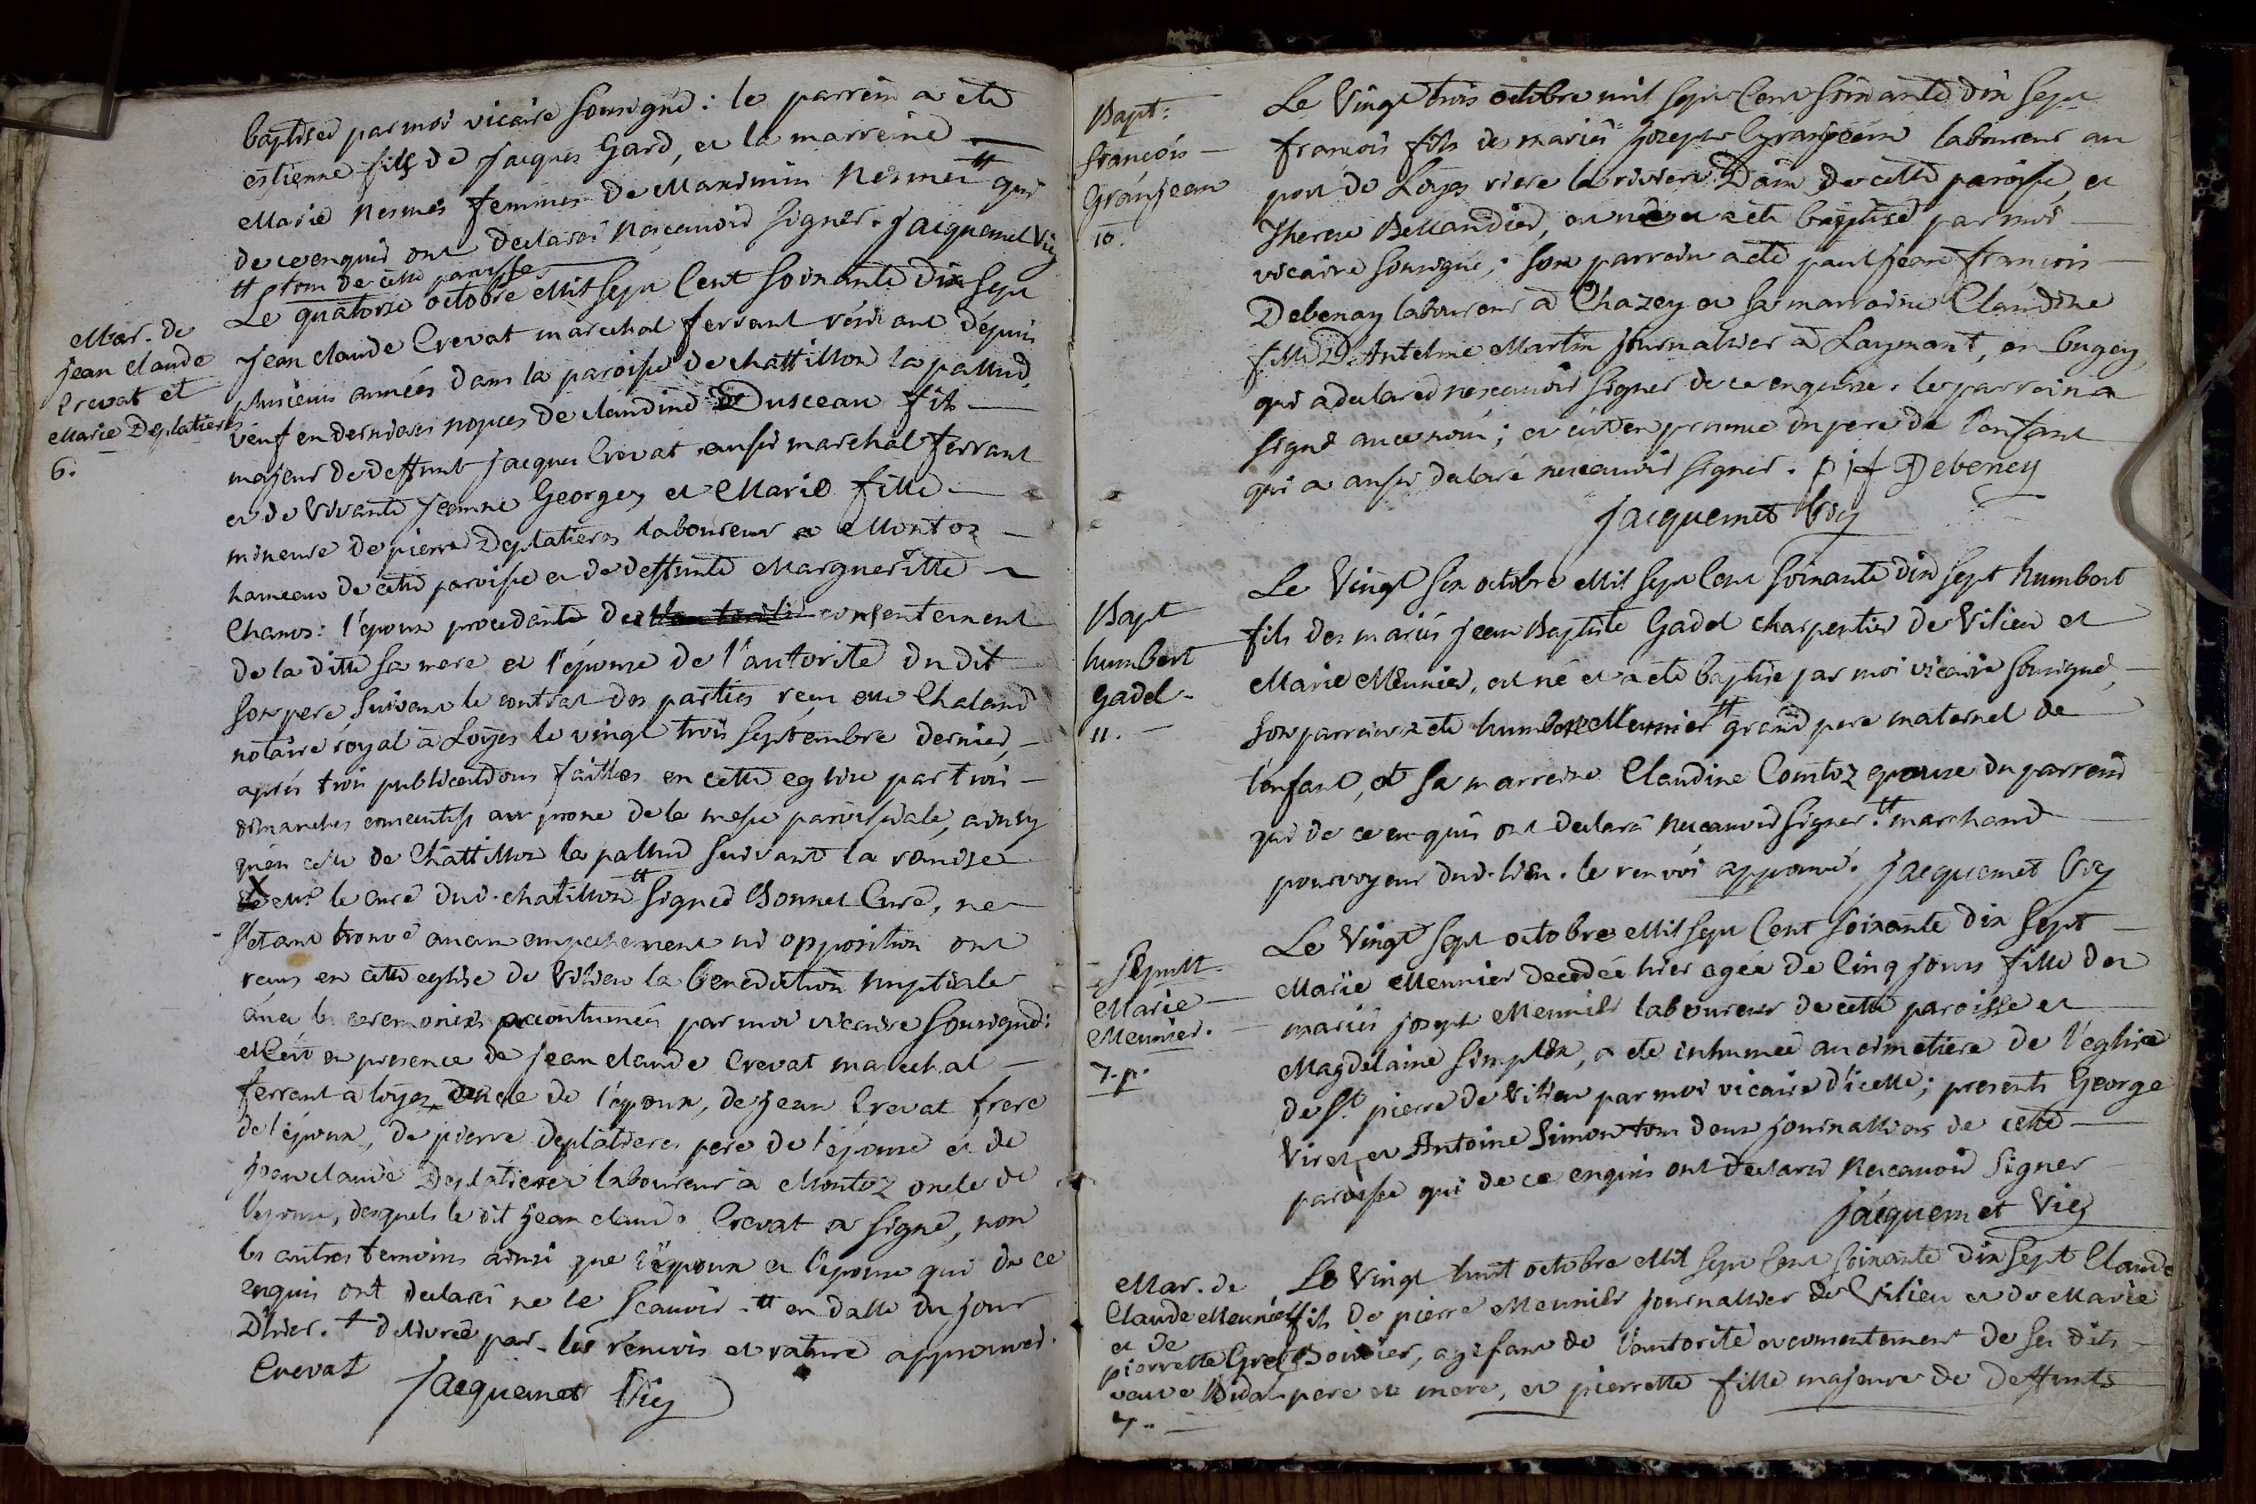 baptisée par moi vicaire sousigné : le parrein a été
estienne fils de jacques Gard, et la marreine
Marie nesmes femmes de Maximin nesmes tt qui
de ce enquis ont declarés ne scavoir signer. jacquemet Vic
tt tous de cette paroisse
Mar. de
jean claude
Crevat et
Marie Deplatieres
6.
Le quatorze octobre Mil sept Cent soixante dix sept
jean claude Crevat marechal ferrant résidant depuis
plusieurs années dans la paroisse de chattillon la pallud,
veuf en dernieres nopces de claudine Dusceau fils
majeur de deffunt jacques Crevat aussi marechal ferrant
et de vivante jeanne Georges et Marie fille
mineure de pierre Deplatieres laboureur a Montoz
hameau de cette paroisse et de deffunte Margueritte
Chanos : l'époux procedante de consentement
de la ditte sa mere et l'épouse de l'autorité du dit
son pere suivant le contrat des parties reçu me Chaland
notaire royal à Loyes le vingt trois septembre dernier,
aprés trois publications faittes en cette eglise par trois
dimanches consecutifs au prone de la messe paroissiale, ainsy
qu'en celle de Châttillon la pallud suivant la remise
X de Mr. le curé dud. chatillon tt signée Bonnet Curé, ne
s'etant trouvé aucun empechement ni opposition ont
reçus en cette eglise de Vilieu la benediction nuptiale
avec les ceremonies accoutumées par moi vicaire sousigné :
et ce en presence de jean claude Crevat marechal
ferrant a loyes, oncle de l'époux, de jean Crevat frere
de l'époux, de pierre deplatieres pere de l'épouse et de
jean claude Deplatieres laboureur à Montoz oncle de
l'epouse, desquels le dit jean claude Crevat a signé, non
les autres temoins ainsi que l'époux et l'epouse qui de ce
enquis ont declarés ne le scavoir. tt en datte du jour
d'hier. + delivrée par. les renvois et rature approuvés.
Crevat jacquemet Vic
Bapt:
francois
Granjean
10.
Le Vingt trois octobre mil sept Cent soixante dix sept
francois fils des mariés joseph Granjean laboureur au
port de Loyes riere la riviere D'ain de cette paroisse, et
Therese Bellandier, est né et a été baptisé par moi
vicaire sousigné ; son parrein a été paul jean francois
Debenay laboureur à Chazey et sa marraine Claudine
fille D'Antelme Martin journallier à Laymant, en bugey,
qui a declaré ne scavoir signer de ce enquise. le parrein a
signé avec nous ; et ce en presence du pere de l'enfant
qui a aussi declaré ne scavoir signer. p j f Debeney
jacquemet Vic
Bapt
humbert
Gadel
11.
Le Vingt six octobre Mil sept Cent soixante dix sept humbert
fils des mariés jean Baptiste Gadel charpentier de Vilieu et
Marie Meunier, est né et a été baptisé par moi vicaire sousigné,
son parrein a été humbert Meunier tt grand pere maternel de
l'enfant, et sa marreine Claudine Comtoz epouse du parrein
qui de ce enquis ont declaré ne scavoir signer. tt marchand
pourvoyeur dud. lieu. le renvoi approuvé. jacquemet Vic
Sépult.
Marie
Meunier.
7. p.
Le Vingt sept octobre Mil sept Cent soixante dix sept
Marie Meunier decedée hier agée de Cinq jours fille des
mariés joseph Meunier laboureur de cette paroisse et
Magdelaine simplex, a été inhumée au cimetiere de l'eglise
de St. pierre de Vilieu par moi vicaire d'icelle ; presents George
Viret, et Antoine Simon tous deux journalliers de cette
paroisse qui de ce enquis ont declaré ne scavoir signer
jacquemet Vic
Mar. de
Claude Meunier
et de
pierrette
veuve Vidal
7.
Le Vingt huit octobre Mil sept Cent soixante dix sept Claude
fils de pierre Meunier journallier de Vilieu et de Marie
Boirier, agissant de l'autorité et consentement de ses dits
pere et mere, et pierrette fille majeure de deffunts